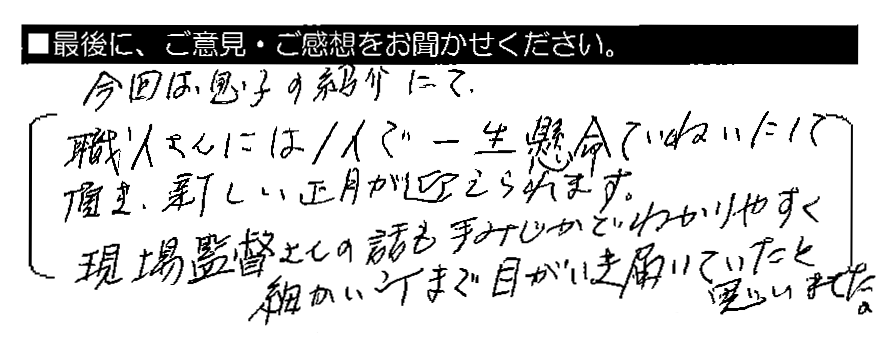 ■最後に、ご意見・ご感想をお聞かせください。
今回は息子の紹介にて、
職人さんには1人で一生懸命ていねいにして
頂き、新しい正月が迎えられます。
現場監督さんの話も手みじかでわかりやすく
細かい所まで目がいき届いていたと
思いました。